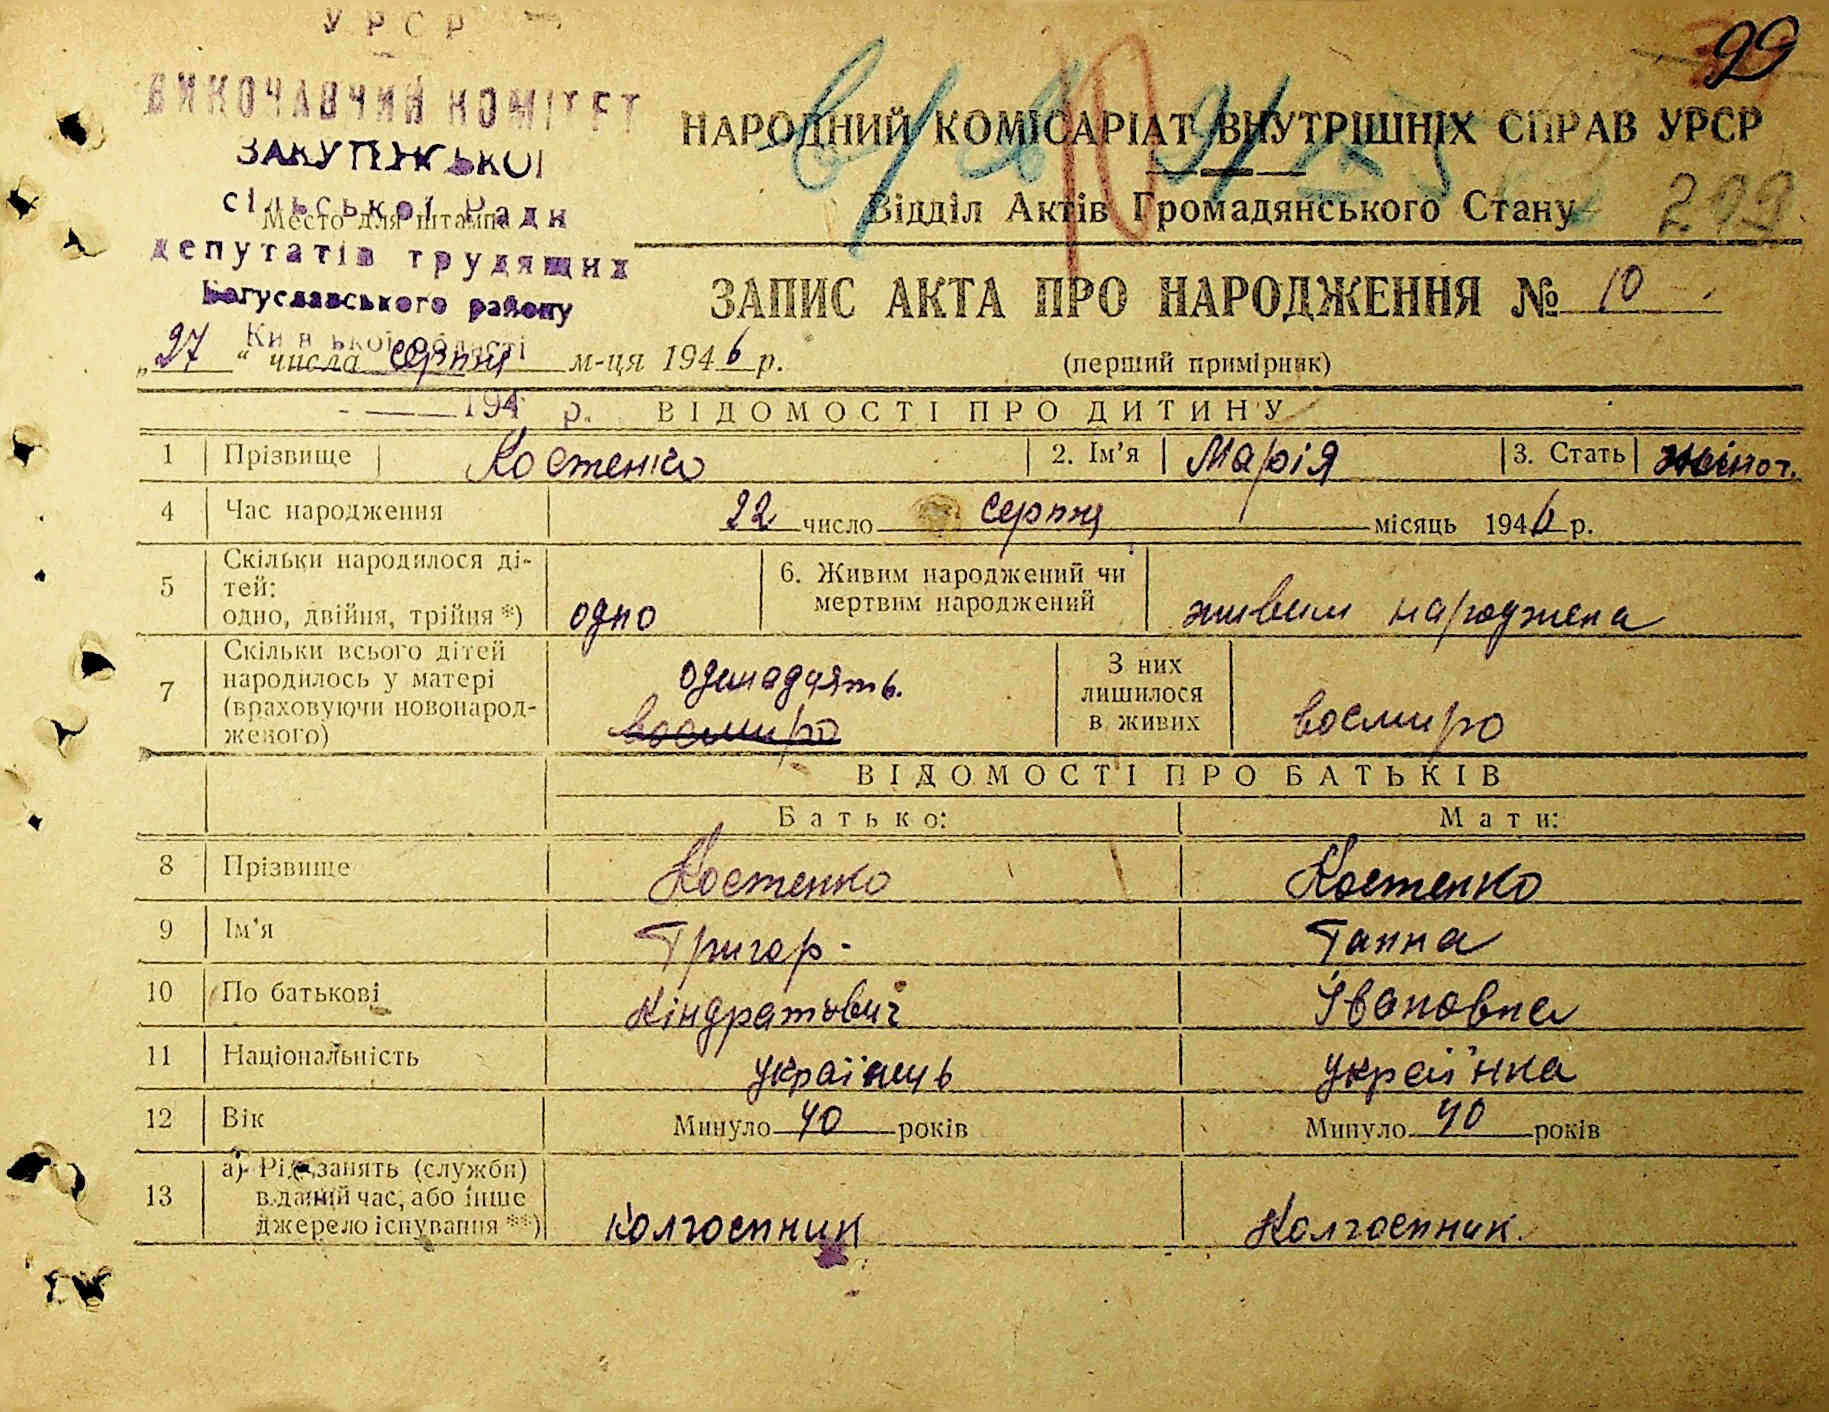 УРСР
ВИКОНАВЧИЙ КОМІТЕТ
сільської Ради
Место для штампа
депутатів трудящих
Богуславського району
Київської області
194 р.
99
НАРОДНИЙ КОМІСАРІАТ ВНУТРІШНІХ СПРАВ УРСР
Відділ Актів Громадянського Стану
299
ЗАПИС АКТА ПРО НАРОДЖЕННЯ № 10
„27“ числа серпня м-ця 1946 р.
(перший примірник)
ВІДОМОСТІ ПРО ДИТИНУ
1 Прізвище Костенко 2. Ім'я Марія 3. Стать жіноч.
4 Час народження 22 число серпня місяць 1946 р.
5 Скільки народилося ді-
тей:
одно, двійня, трійня *) одно
6. Живим народжений чи
мертвим народжений живим народжена
7 Скільки всього дітей
народилось у матері
(враховуючи новонарод-
женого)
одинадцять.
восьмиро
З них
лишилося
в живих
восьмиро
ВІДОМОСТІ ПРО БАТЬКІВ
Батько: Мати:
8 Прізвище Костенко Костенко
9 Ім'я Григор Ганна
10 По батькові Кіндратович Івановна
11 Національність українець українка
12 Вік Минуло 40 років Минуло 40 років
13 а) Рід занять (служби)
в даний час, або інше
джерело існування **) колгоспник Колгоспник.